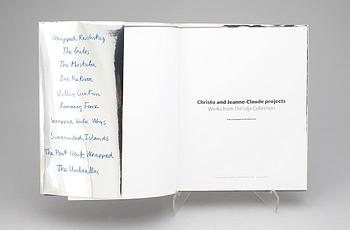 Wrapped Reichstag
The Gates
The Mastaba
Over the River
Valley Curtain
Running Fence
Wrapped Walk Ways
Surrounded Islands
The Pont Neuf, Wrapped
The Umbrellas
Christo and Jeanne-Claude projects
Works from the Lilja Collection